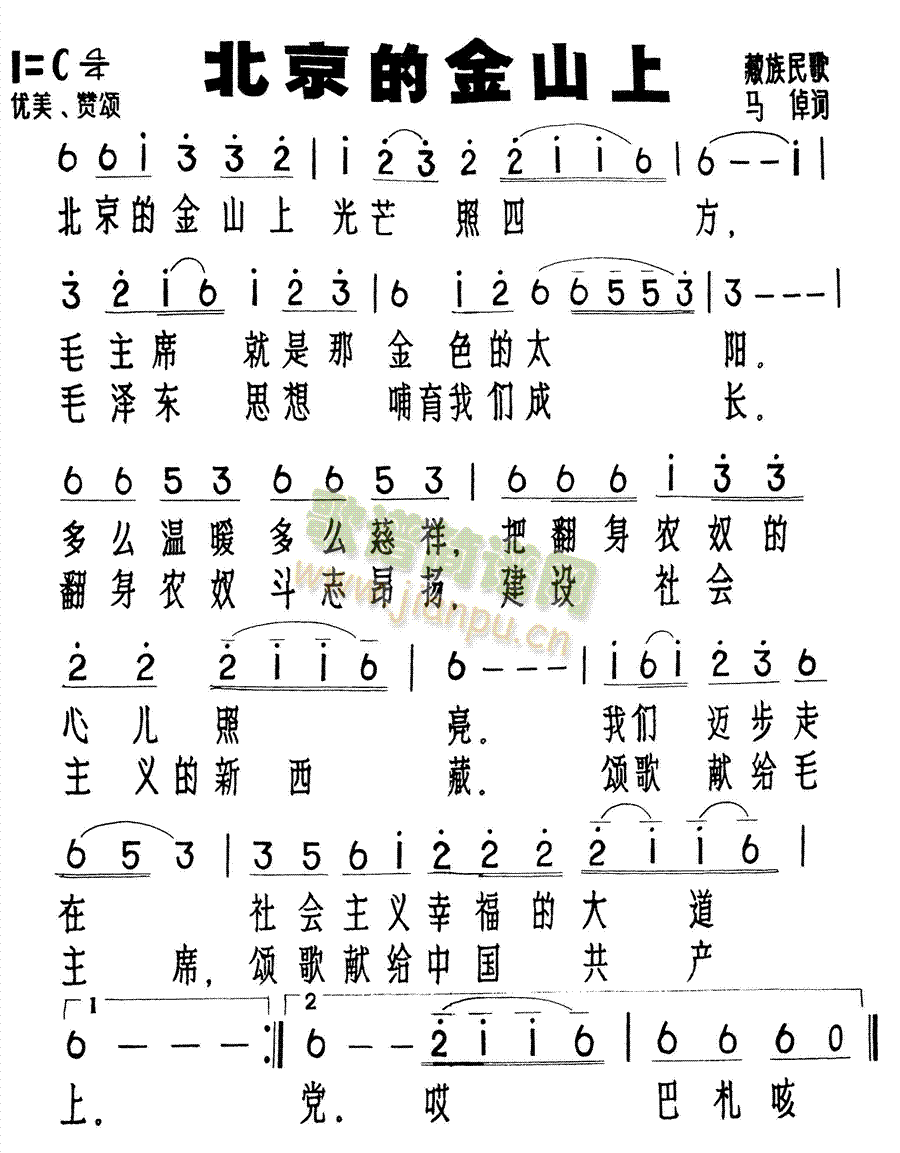 北京的金山上
1=C 4/4
优美、赞颂
藏族民歌
马倬词
6 6 i 3 3 2 | i 2 3 2 2 i i 6 | 6 - - i |
北京的金山上 光芒 照四 方，
3 2 i 6 i 2 3 | 6 i 2 6 6 5 5 3 | 3 - - - |
毛主席 就是那 金色的太 阳。
毛泽东 思想 哺育我们成 长。
6 6 5 3 6 6 5 3 | 6 6 6 i 3 3
多么温暖 多么慈祥，把翻身农奴的
翻身农奴斗志昂扬，建设 社会
2 2 2 i i 6 | 6 - - - | i 6 i 2 3 6
心儿照 亮。 我们 迈步走
主义的新西 藏。 颂歌 献给毛
6 5 3 | 3 5 6 i 2 2 2 2 i i 6 |
在 社会主义幸福的大 道
主 席，颂歌献给中国 共 产
1 2
6 - - - :|| 6 - - 2 i i 6 | 6 6 6 0 ||
上。 党。哎 巴札咳
歌谱简谱网
www.jianpu.cn